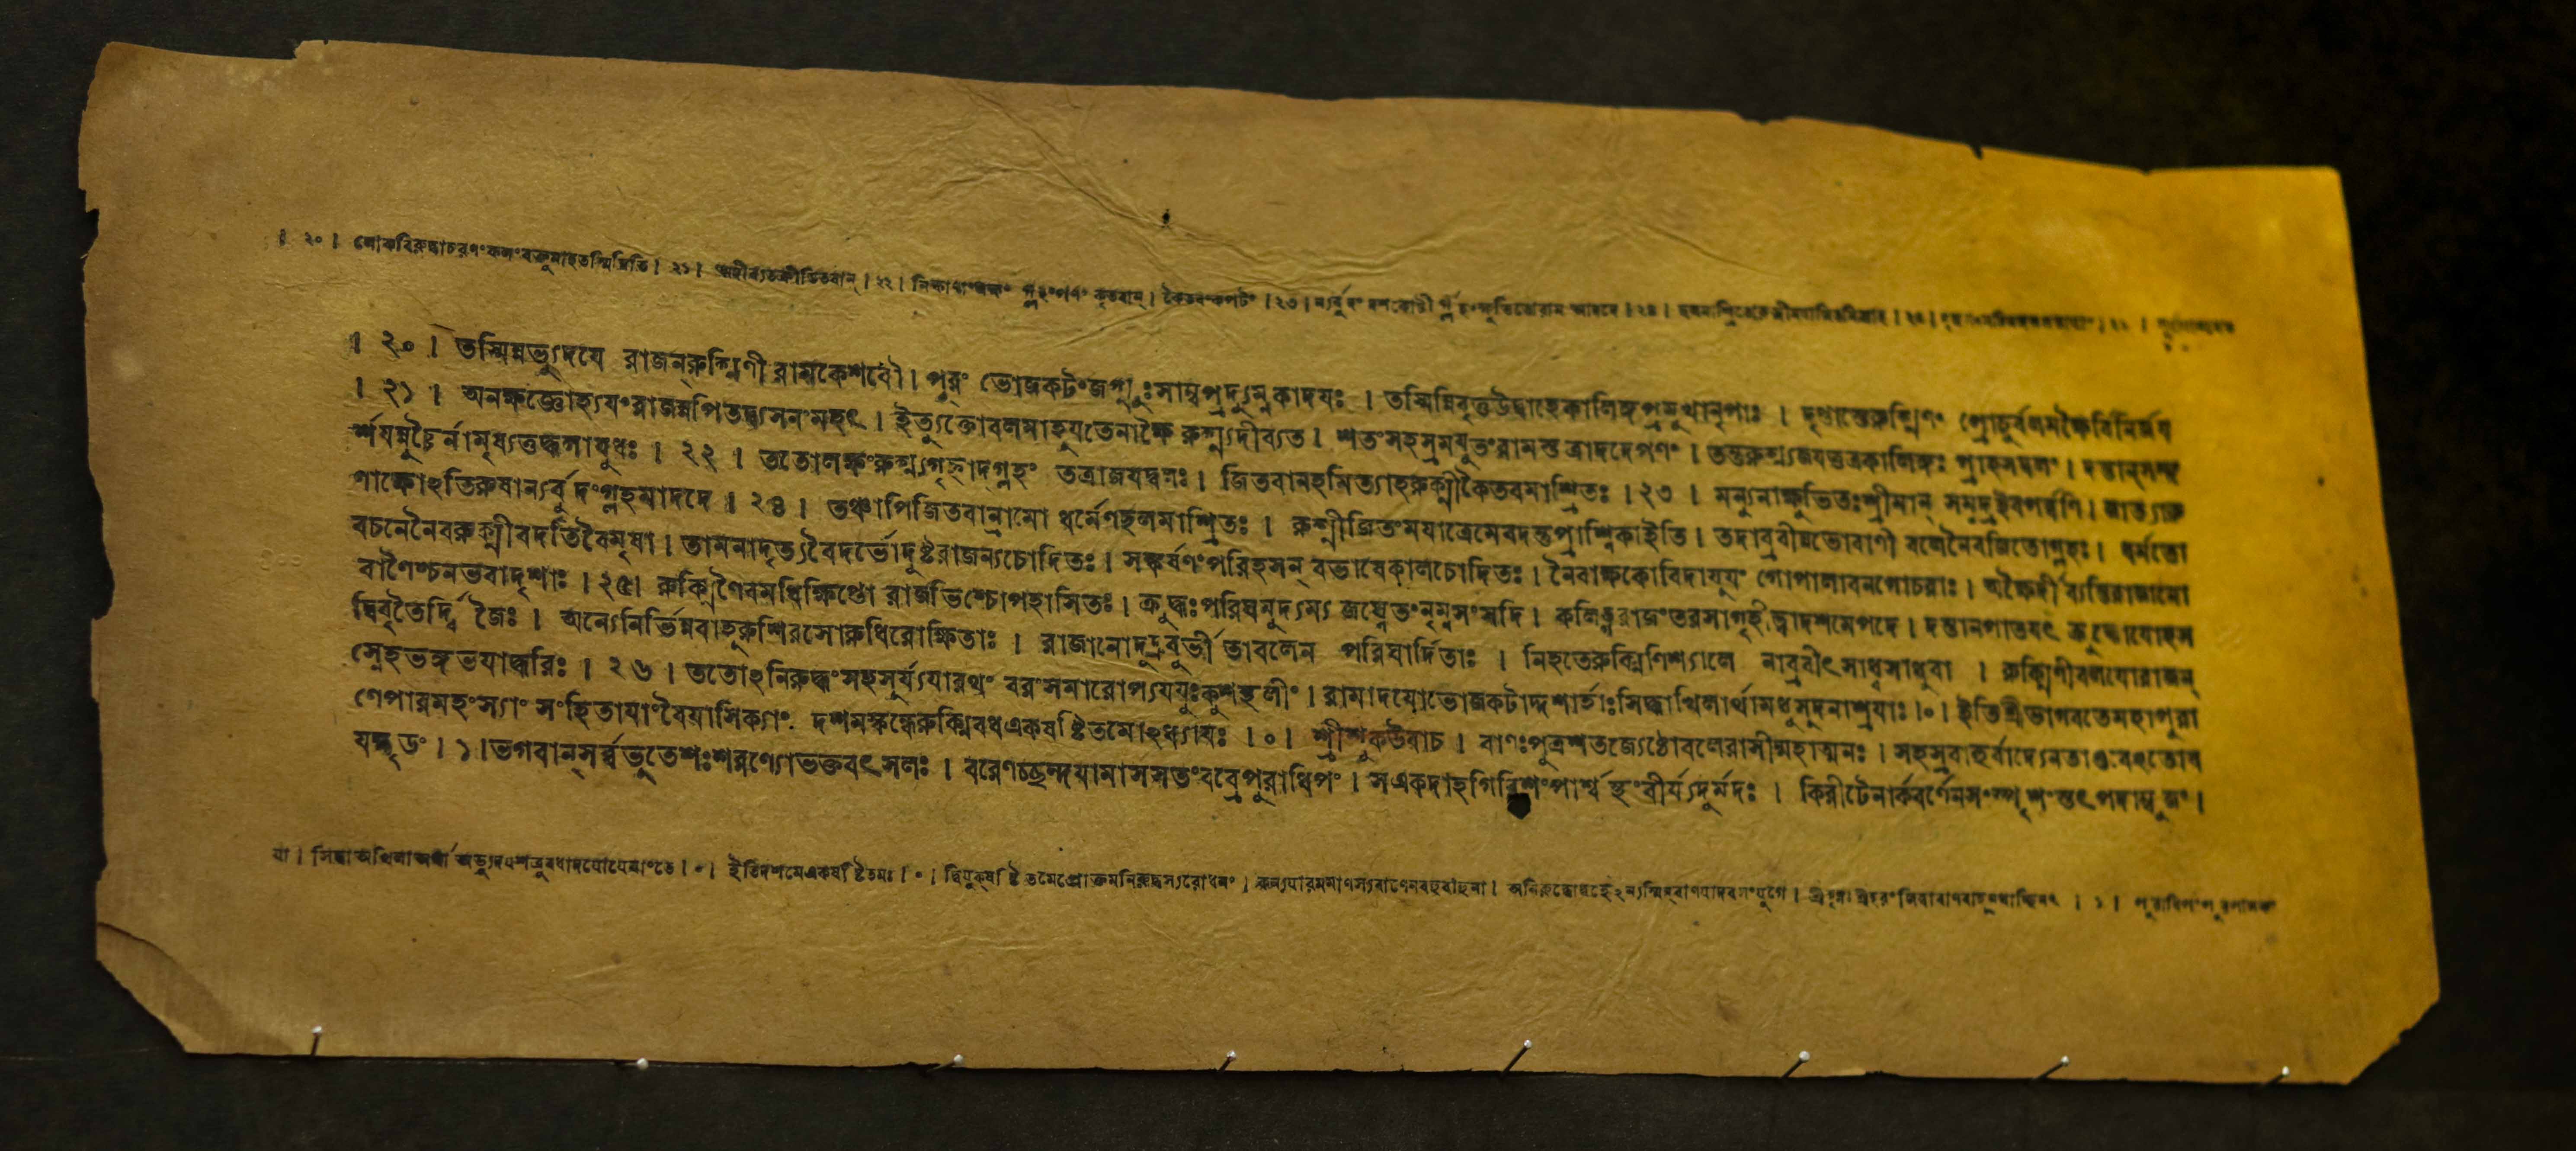 । ২০ । লোকবিরুদ্ধাচরণংফলংবক্তুমাহতস্মিন্নিতি । ২১ । অদীব্যতক্রীডিতবান্ । ২২ । কৃতবান্ । কৈতবংকপটং । ২৩ । ন্যর্বুদং দশকোটী আদদে । ২৪ ।
। ২০ । তস্মিন্নভ্যুদযে রাজন্‌রুক্মিণী রামকেশবৌ । পুরং ভোজকটংজগ্মুঃসাম্বপ্রদ্যুম্নকাদযঃ । তস্মিন্নিবৃত্তউদ্বাহেকালিঙ্গপ্রমুখানৃপাঃ । দৃপ্তাস্তেরুক্মিণং প্রোচুর্বলমক্ষৈর্বিনির্জয
। ২১ । অনক্ষজ্ঞোহ্যযংরাজন্নপিতদ্ব্যসনংমহৎ । ইত্যুক্তোবলমাহূযতেনাক্ষৈ রুক্ম্যদীব্যত । শতংসহস্রমযুতংরামস্তত্রাদদেপণং । তন্তুরুক্ম্যজযত্তত্রকালিঙ্গঃ প্রাহসদ্বলং । দন্তান্‌সন্দ
র্শযন্নুচ্চৈর্নামৃষ্যত্তদ্ধলাযুধঃ । ২২ । ততোলক্ষংরুক্ম্যগৃহ্নাদ্‌গ্লহং তত্রাজযদ্বলঃ । জিতবানহমিত্যাহরুক্মীকৈতবমাশ্রিতঃ । ২৩ । মন্যুনাক্ষুভিতঃশ্রীমান্ সমুদ্রইবপর্বণি । জাত্যারু
ণাক্ষোঽতিরুষান্যর্বুদংগ্লহমাদদে । ২৪ । তঞ্চাপিজিতবান্রামো ধর্মেণছলমাশ্রিতঃ । রুক্মীজিতংমযাত্রেমেবদন্তুপ্রাশ্নিকাইতি । তদাব্রবীন্নভোবাণী বলেনৈবজিতোগ্লহঃ । ধর্মতো
বচনেনৈবরুক্মীবদতিবৈমৃষা । তামনাদৃত্যবৈদর্ভোদুষ্টরাজন্যচোদিতঃ । সঙ্কর্ষণংপরিহসন্ বভাষেকালচোদিতঃ । নৈবাক্ষকোবিদাযূযং গোপালাবনগোচরাঃ । অক্ষৈর্দীব্যন্তিরাজানো
বাণৈশ্চনভবাদৃশাঃ । ২৫। রুক্মিণৈবমধিক্ষিপ্তো রাজভিশ্চোপহাসিতঃ । ক্রুদ্ধঃপরিঘমুদ্যম্য জঘ্নেতংনৃম্নসংসদি । কলিঙ্গরাজংতরসাগৃহীত্বাদশমেপদে । দন্তানপাতযৎ ক্রুদ্ধোযোহস
দ্বিবৃতৈর্দ্বিজৈঃ । অন্যেনির্ভিন্নবাহূরুশিরসোরুধিরোক্ষিতাঃ । রাজানোদুদ্রুবুর্ভীতাবলেন পরিঘার্দিতাঃ । নিহতেরুক্মিণিশ্যালে নাব্রবীৎসাধ্বসাধুবা । রুক্মিণীবলযোরাজন্
স্নেহভঙ্গভযাদ্ধরিঃ । ২৬ । ততোঽনিরুদ্ধংসহসূর্য্যযারথং বরংসমারোপ্যযযুঃকুশস্থলীং । রামাদযোভোজকটাদ্দশার্হাঃসিদ্ধাখিলার্থামধুসূদনাশ্রযাঃ ।০। ইতিশ্রীভাগবতেমহাপুরা
ণেপারমহংস্যাং সংহিতাযাংবৈযাসিক্যাং দশমস্কন্ধেরুক্মিবধএকষষ্টিতমোঽধ্যাযঃ । ০ । শ্রীশুকউবাচ । বাণঃপুত্রশতজ্যেষ্ঠোবলেরাসীন্মহাত্মনঃ । সহস্রবাহুর্বাদ্যেনতাণ্ডবেঽতোষ
যন্মৃডং । ১ ।ভগবান্‌সর্ব্বভূতেশঃশরণ্যোভক্তবৎসলঃ । বরেণচ্ছন্দযামাসসতংবব্রেপুরাধিপং । সএকদাহগিরিশংপার্শ্বস্থংবীর্য্যদুর্মদঃ । কিরীটেনার্কবর্ণেনসংস্পৃশংস্তৎপদাম্বুজং ।
যা । সিদ্ধাঅখিলাঅর্থা অভ্যুদযশত্রুবধাদযোযেষাংতে । ০ । ইতিদশমেএকষষ্টিতমঃ । ০ । দ্বিযুক্‌ষষ্টিতমেপ্রোক্তমনিরুদ্ধস্যরোধনং । কন্যযারমমাণস্যবাণেনবহুবাহুনা । । ১ ।